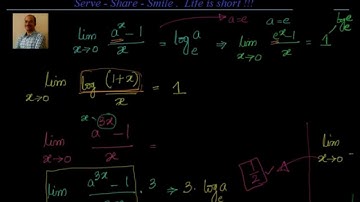 Serve - Share - Smile . Life is short !!!
lim x→0 (a^x - 1)/x = log_e a ⇒ lim x→0 (e^x - 1)/x = 1
a = e
log_e e
lim x→0 log(1+x)/x = 1
x → 3x
lim x→0 (a^3x - 1)/x =
lim x→0
1/2
lim (a^3x - 1) . 3 ⇒ 3. log_e a